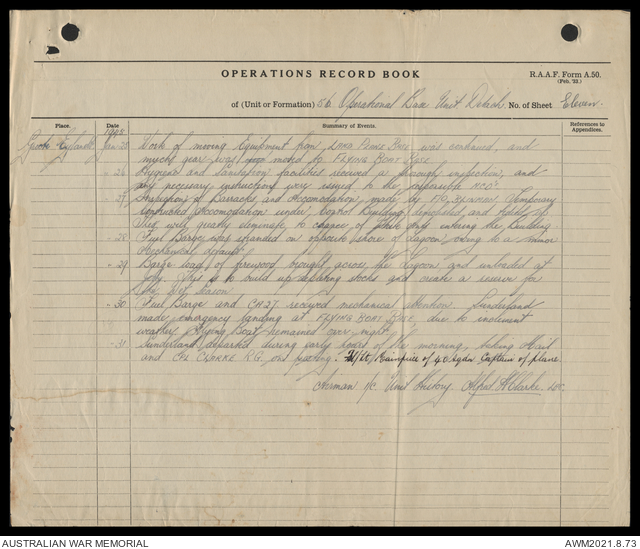 OPERATIONS RECORD BOOK
R.A.A.F. Form A.50.
(Feb. '22.)
of (Unit or Formation) 56 Operational Base Unit Detach. No. of Sheet Eleven.
Place. Date Summary of Events. References to Appendices.
Groote Eylandt 1945 Jan. 25 Work of moving Equipment from LAND PLANE BASE was continued, and
much gear was moved to FLYING BOAT BASE
" 26 Hygiene and sanitation facilities received a thorough inspection, and
any necessary instructions were issued to the responsible N.C.O's.
" 27 Inspection of Barracks and Accomodation, made by F/O. Temporary
constructed accomodation under Control Building, and
This will greatly to chance of entering the Building.
" 28 Fuel Barge was stranded on opposite shore of lagoon, owing to a minor
mechanical default.
" 29 Barge load of firewood brought across the lagoon and unloaded at
jetty. This is to build up existing stocks and create a reserve for
the Wet Season.
" 30 Fuel Barge and received mechanical attention. Sunderland
made emergency landing at FLYING BOAT BASE due to inclement
weather. Flying Boat remained over night.
" 31 Sunderland departed during early hours of the morning, taking Mail
and Cpl CLARKE R.G. on posting. F/Lt. of 40 Sqdn Captain of plane.
Airman i/c. Unit History. Clarke. LAC.
AUSTRALIAN WAR MEMORIAL
AWM2021.8.73